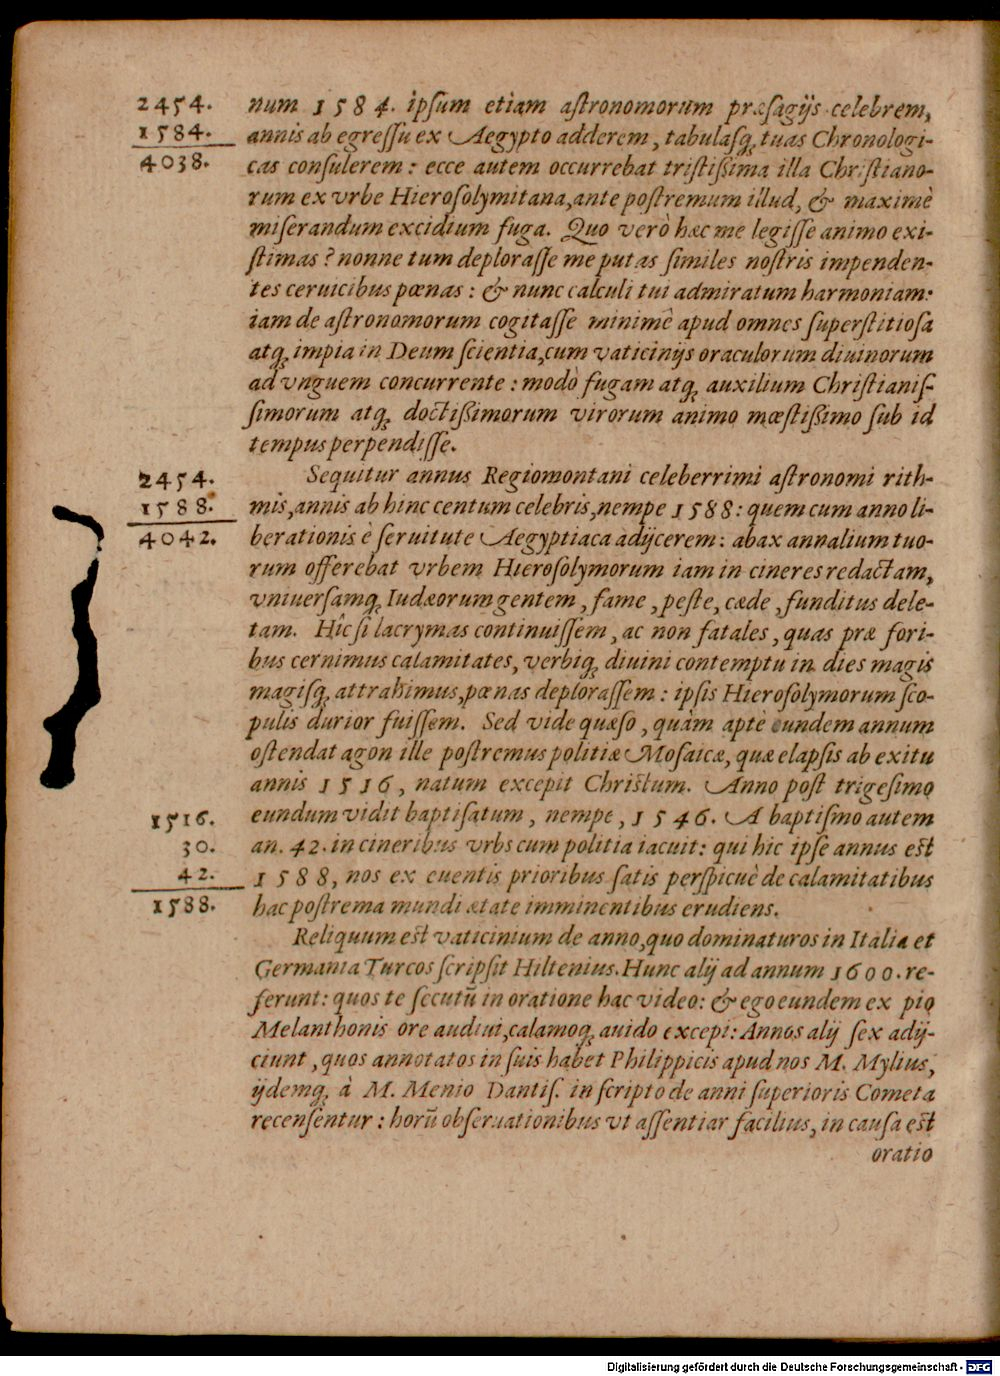 2454.
1584.
4038.
num 1584. ipſum etiam aſtronomorum præſagijs celebrem,
annis ab egreſſu ex Aegypto adderem, tabulasq́; tuas Chronologi-
cas conſulerem: ecce autem occurrebat triſtißima illa Chriſtiano-
rum ex vrbe Hieroſolymitana, ante poſtremum illud, & maximè
miſerandum excidium fuga. Quo verò hæc me legiſſe animo exi-
ſtimas? nonne tum deploraſſe me putas ſimiles noſtris impenden-
tes ceruicibus pœnas: & nunc calculi tui admiratum harmoniam:
iam de aſtronomorum cogitaſſe minimè apud omnes ſuperſtitioſa
atq́; impia in Deum ſcientia, cum vaticinijs oraculorum diuinorum
ad vnguem concurrente: modò fugam atq́; auxilium Chriſtianiſ-
ſimorum atq́; doctißimorum virorum animo mœſtißimo ſub id
tempus perpendiſſe.
2454.
1588.
4042.
Sequitur annus Regiomontani celeberrimi aſtronomi rith-
mis, annis ab hinc centum celebris, nempe 1588: quem cum anno li-
berationis è ſeruitute Aegyptiaca adijcerem: abax annalium tuo-
rum offerebat vrbem Hieroſolymorum iam in cineres redactam,
vniuerſamq́; Iudæorum gentem, fame, peſte, cæde, funditus dele-
tam. Hîc ſi lacrymas continuiſſem, ac non fatales, quas præ fori-
bus cernimus calamitates, verbiq́; diuini contemptu in dies magis
magiſq́; attrahimus, pœnas deploraſſem: ipſis Hieroſolymorum ſco-
pulis durior fuiſſem. Sed vide quæſo, quàm aptè eundem annum
oſtendat agon ille poſtremus politiæ Moſaicæ, quæ elapſis ab exitu
annis 1516, natum excepit Chriſtum. Anno poſt trigeſimo
eundum vidit baptiſatum, nempe, 1546. A baptiſmo autem
an. 42. in cineribus vrbs cum politia iacuit: qui hic ipſe annus eſt
1588, nos ex euentis prioribus ſatis perſpicuè de calamitatibus
hac poſtrema mundi ætate imminentibus erudiens.
1516.
30.
42.
1588.
Reliquum eſt vaticinium de anno, quo dominaturos in Italia et
Germania Turcos ſcripſit Hiltenius. Hunc alij ad annum 1600. re-
ferunt: quos te ſecutũ in oratione hac video: & ego eundem ex pio
Melanthonis ore audiui, calamoq́; auido excepi: Annos alij ſex adij-
ciunt, quos annotatos in ſuis habet Philippicis apud nos M. Mylius,
ijdemq́; à M. Menio Dantiſ. in ſcripto de anni ſuperioris Cometa
recenſentur: horũ obſeruationibus vt aſſentiar facilius, in cauſa eſt
oratio
Digitalisierung gefördert durch die Deutsche Forschungsgemeinschaft - DFG